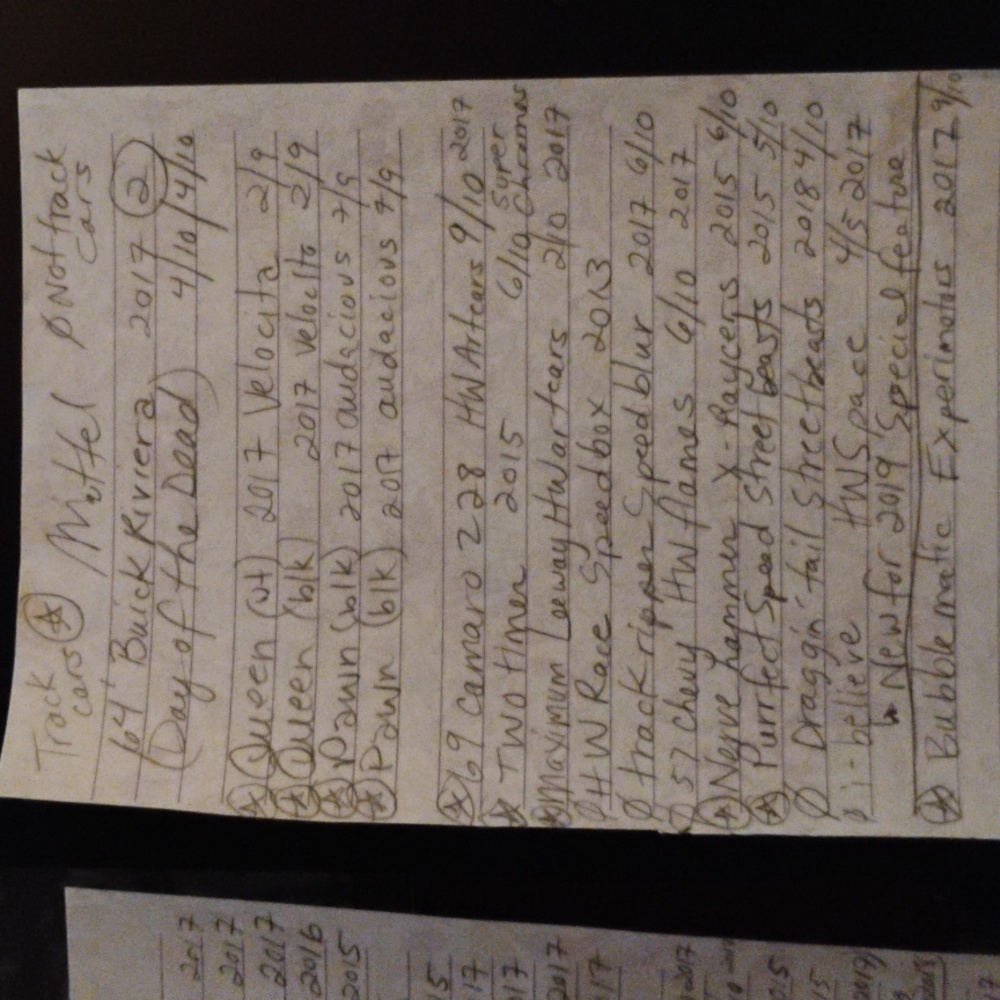 Track cars ☆ Mattel Ø Not track cars
64' Buick Rivera 2017 ②
(Day of the Dead) 4/10/4/10
☆ Queen (wt) 2017 Velocita 2/9
☆ Queen (blk) 2017 Velocita 2/9
☆ Pawn (blk) 2017 audacious 7/9
☆ Pawn (blk) 2017 audacious 7/9
☆ 69 Camaro Z28 HW Artcars 9/10 2017
☆ Two timer 2015 6/10 Super Chromes
☆ Maximum Leeway HW artcars 2/10 2017
Ø HW Race Speedbox 2013
Ø track ripper Speed blur 2017 6/10
Ø 57 Chevy HW flames 6/10 2017
☆ Nerve hammer X-Raycers 2015 6/10
☆ Purrfect Speed Street beasts 2015 5/10
Ø Draggin' tail Street beasts 2018 4/10
Ø i-believe HW Space 4/5 2017
↳ New for 2019 Special feature
☆ Bubble matic Experimotors 2017 9/10
2017
2017
2017
2016
2015
15
17
17
2017
17
2017
2015
15
2017
2018
7